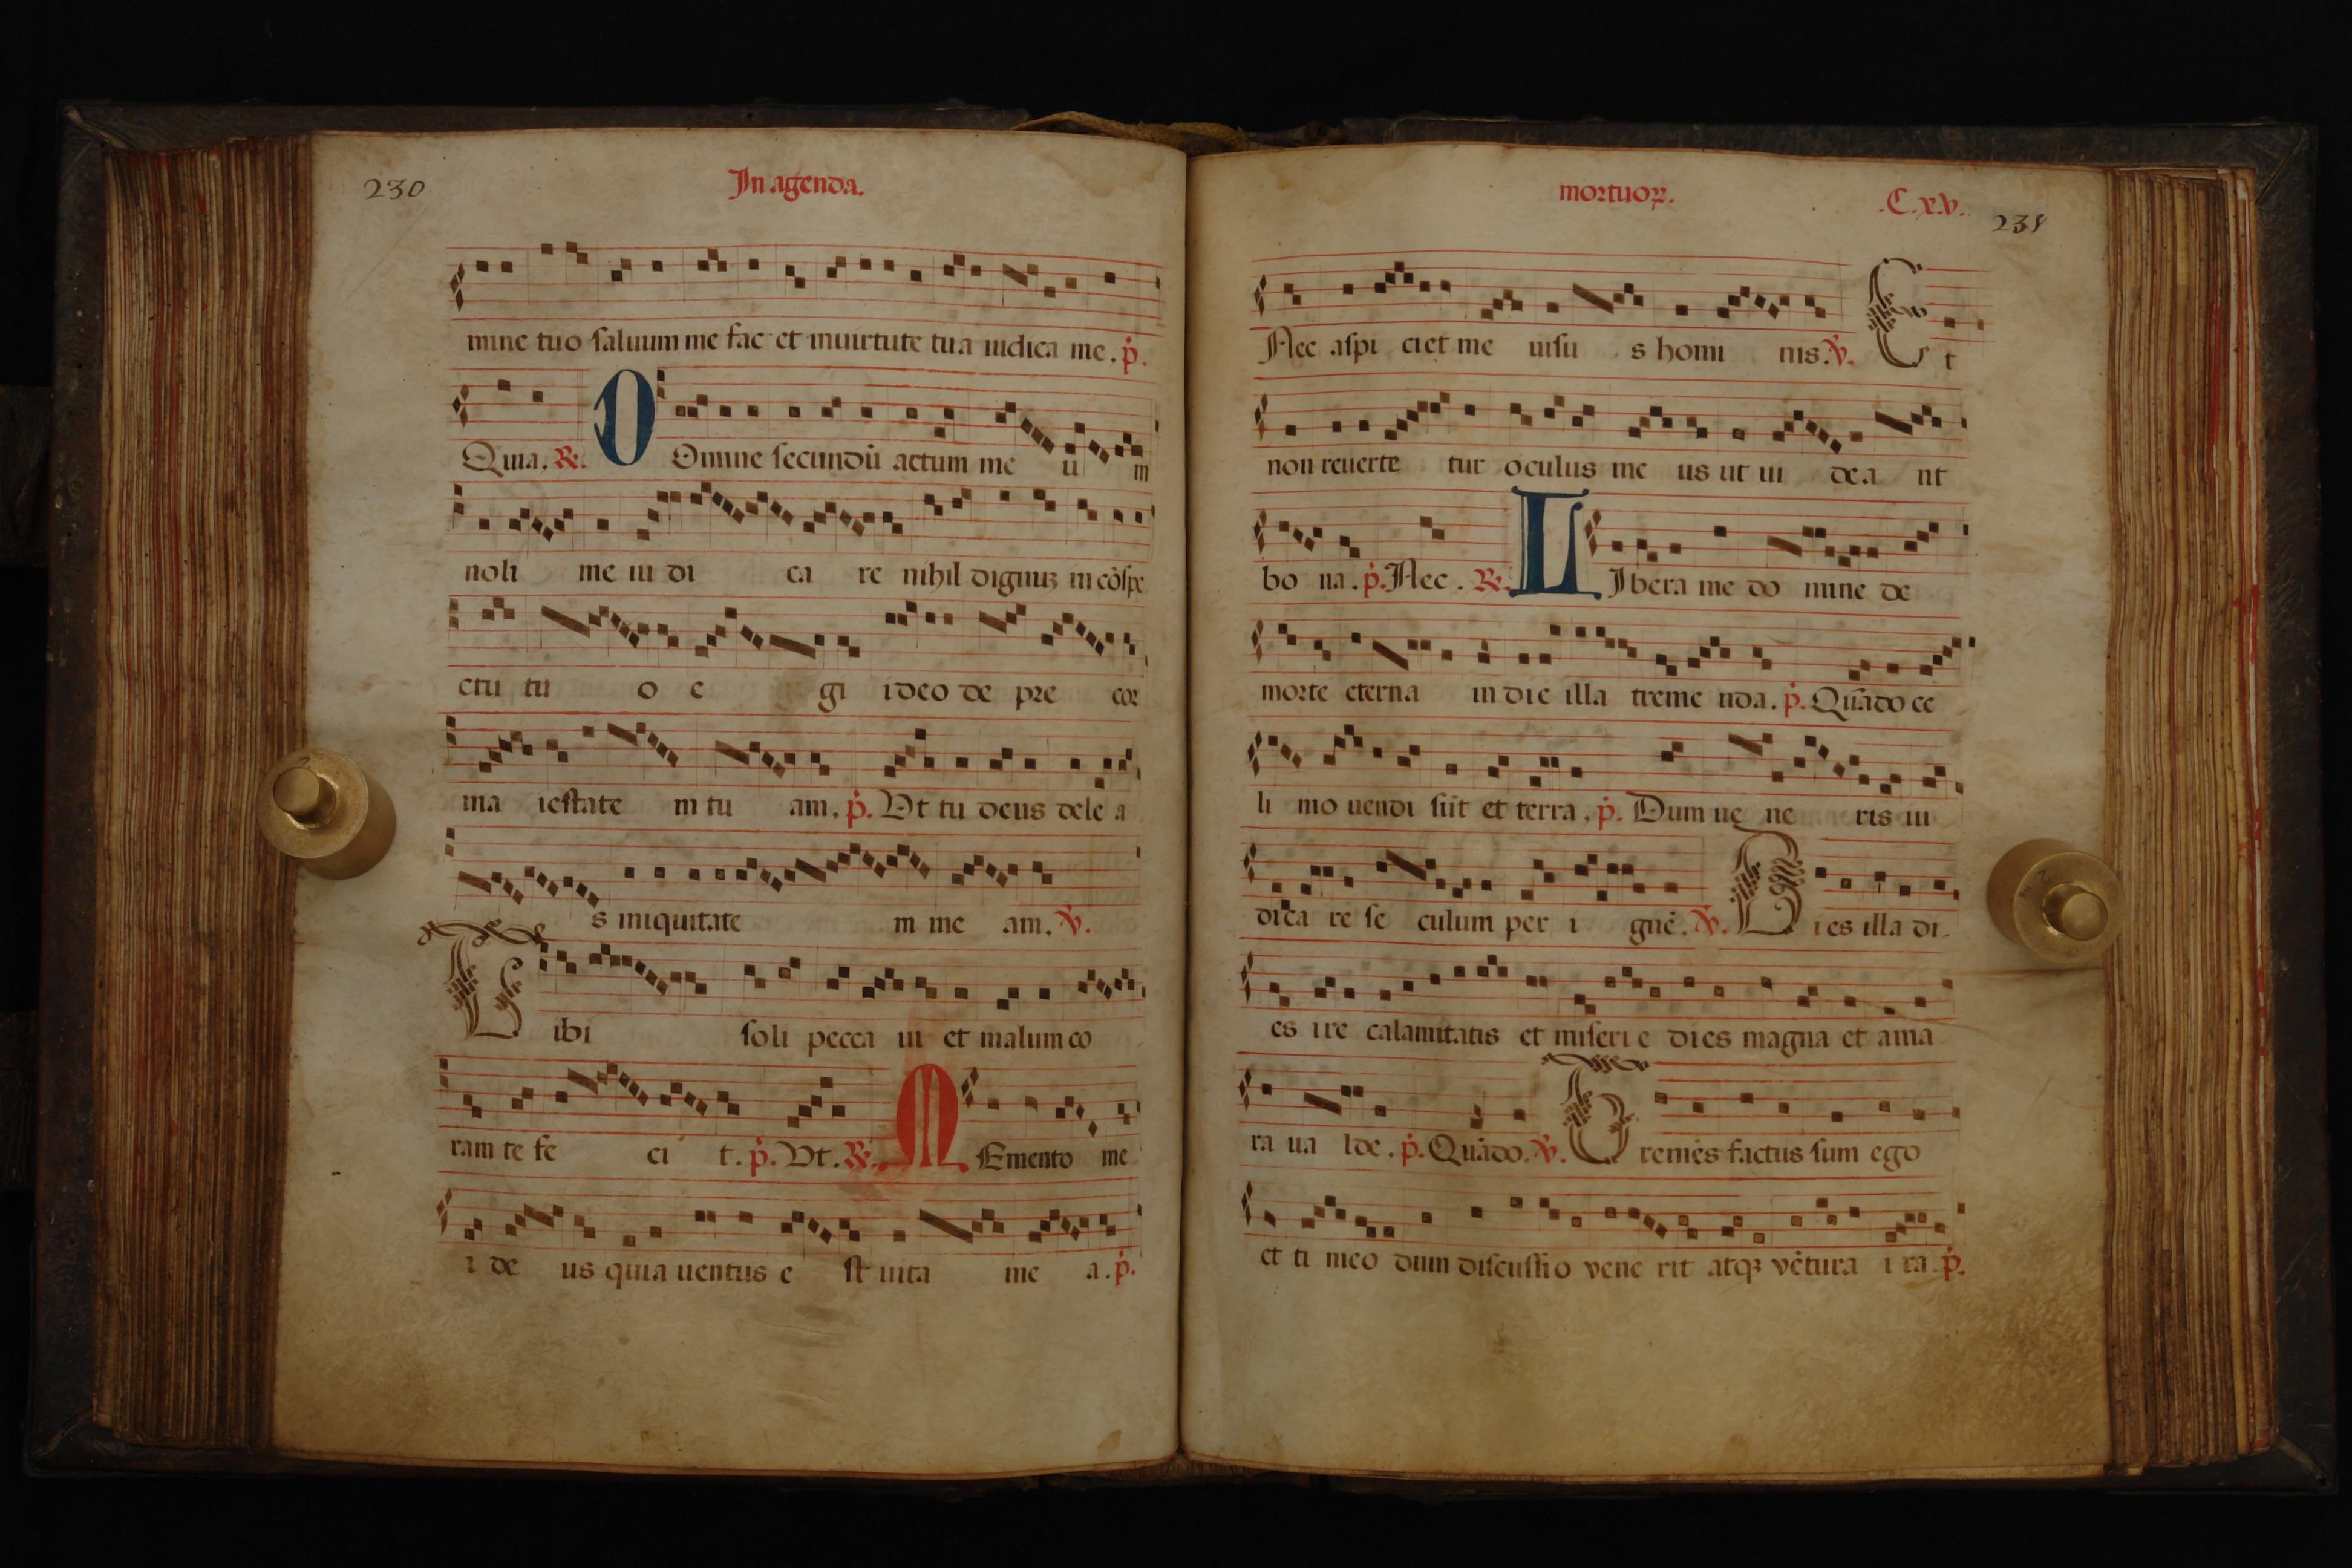 230
In agenda.
mine tuo saluum me fac et in uirtute tua iudica me. p̄.
Quia. ℟. D Omine secundū actum me u m
noli me iu di ca re nihil dignuꝫ in cōspe
ctu tu o e gi ideo de pre cor
ma iestate m tu am. p̄. Vt tu deus dele a
s iniquitate m me am. ℣.
T ibi soli pecca ui et malum co
ram te fe ci t. p̄. Vt. ℟. M Emento me
i de us quia uentus e st uita me a. p̄.
mortuoꝝ. .C.x.v.
Nec aspi ciet me uisu s homi nis. ℣. E t
non reuerte tur oculus me us ut ui dea nt
bo na. p̄. Nec. ℟. L Ibera me do mine de
morte eterna in die illa treme nda. p̄. Quādo ce
li mo uendi sūt et terra. p̄. Dum ue ne ris iu
dica re se culum per i gnē. ℣. D ies illa di-
es ire calamitatis et miseri e dies magna et ama
ra ua lde. p̄. Quādo. ℣. T remēs factus sum ego
et ti meo dum discussio vene rit atqꝫ vētura i ra. p̄.